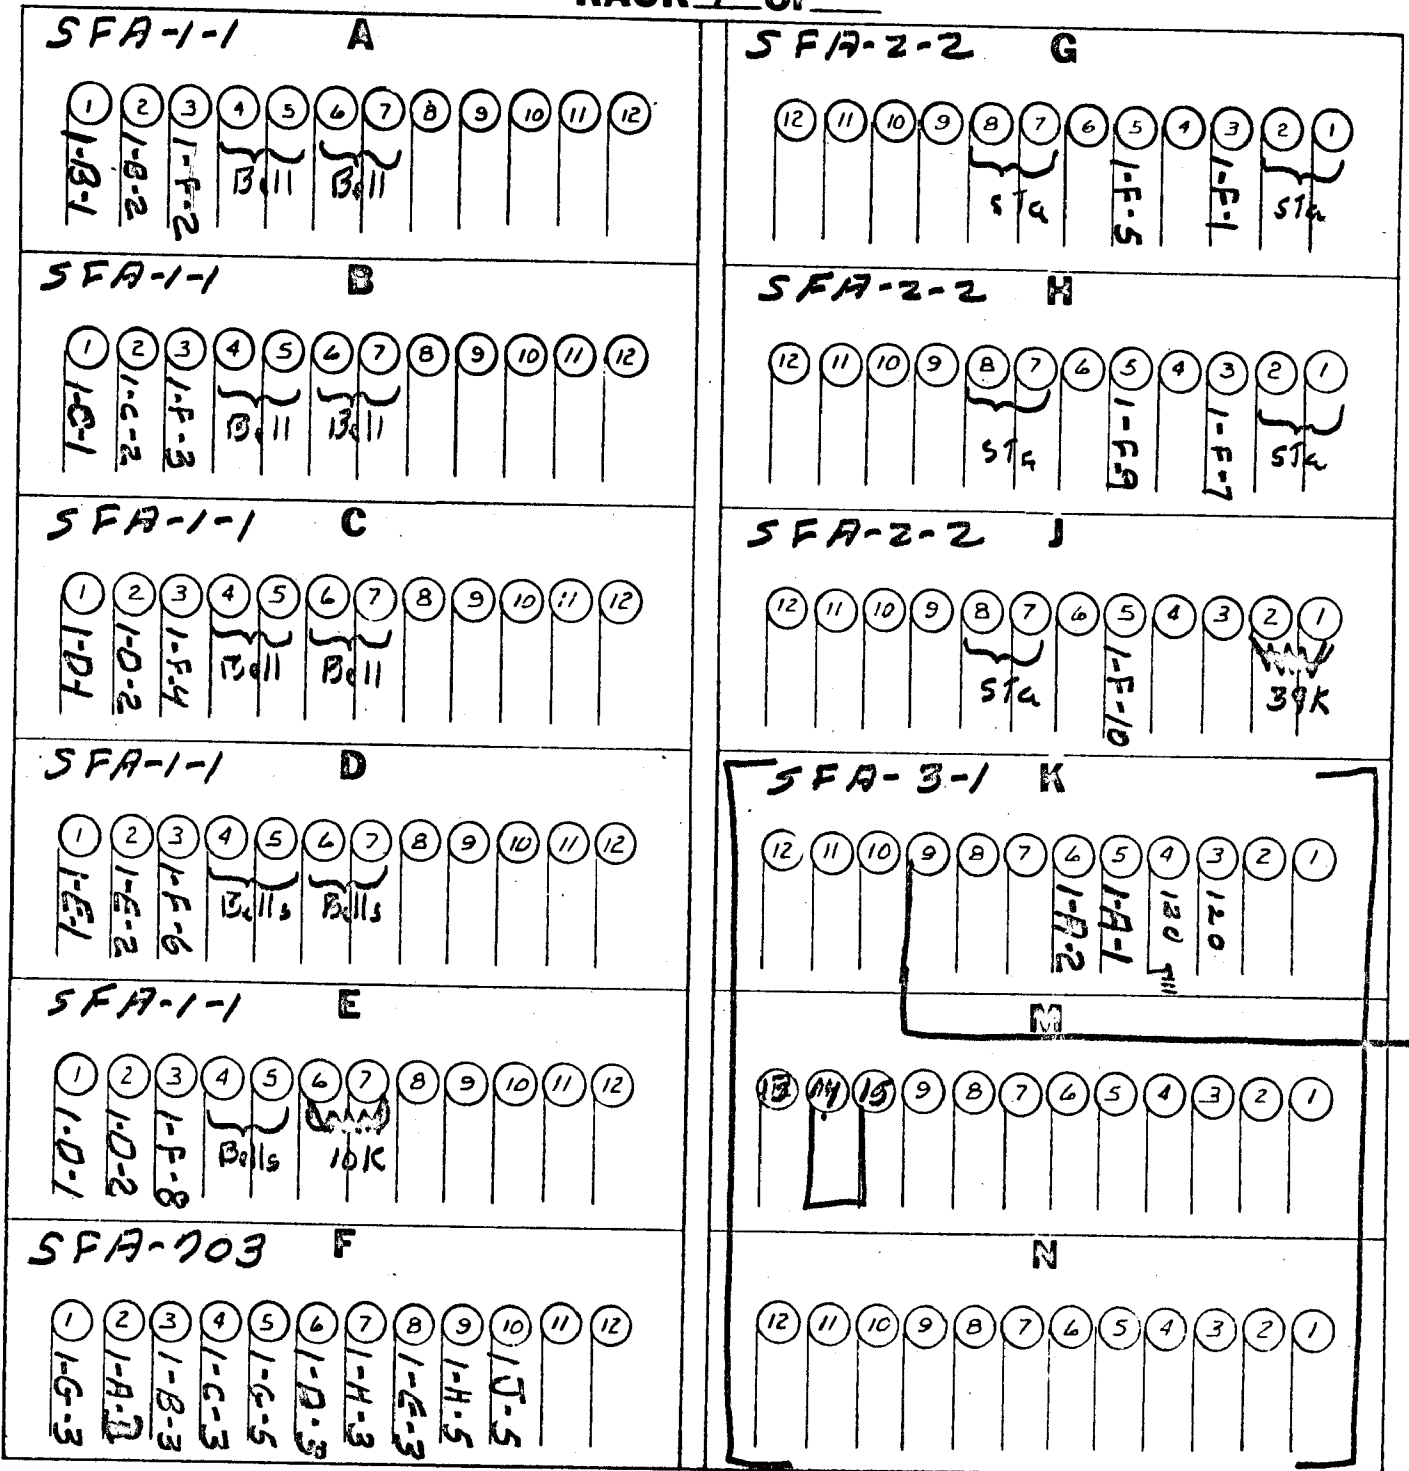 RACK 1 OF
SFA-1-1 A
1 2 3 4 5 6 7 8 9 10 11 12
1-B-1 1-B-2 1-F-2 Bell Bell
SFA-1-1 B
1 2 3 4 5 6 7 8 9 10 11 12
1-C-1 1-C-2 1-F-3 Bell Bell
SFA-1-1 C
1 2 3 4 5 6 7 8 9 10 11 12
1-D-1 1-D-2 1-F-4 Bell Bell
SFA-1-1 D
1 2 3 4 5 6 7 8 9 10 11 12
1-E-1 1-E-2 1-F-6 Bells Bells
SFA-1-1 E
1 2 3 4 5 6 7 8 9 10 11 12
1-D-1 1-D-2 1-F-8 Bells 10K
SFA-703 F
1 2 3 4 5 6 7 8 9 10 11 12
1-G-3 1-B-3 1-C-3 1-G-5 1-D-3 1-H-3 1-E-3 1-H-5 1-J-5
SFA-2-2 G
12 11 10 9 8 7 6 5 4 3 2 1
STa 1-F-5 1-F-1 STa
SFA-2-2 H
12 11 10 9 8 7 6 5 4 3 2 1
STa 1-F-9 1-F-7 STa
SFA-2-2 J
12 11 10 9 8 7 6 5 4 3 2 1
STa 1-F-10 39K
SFA-3-1 K
12 11 10 9 8 7 6 5 4 3 2 1
1-A-2 1-A-1 120 120
M
13 14 15 9 8 7 6 5 4 3 2 1
N
12 11 10 9 8 7 6 5 4 3 2 1